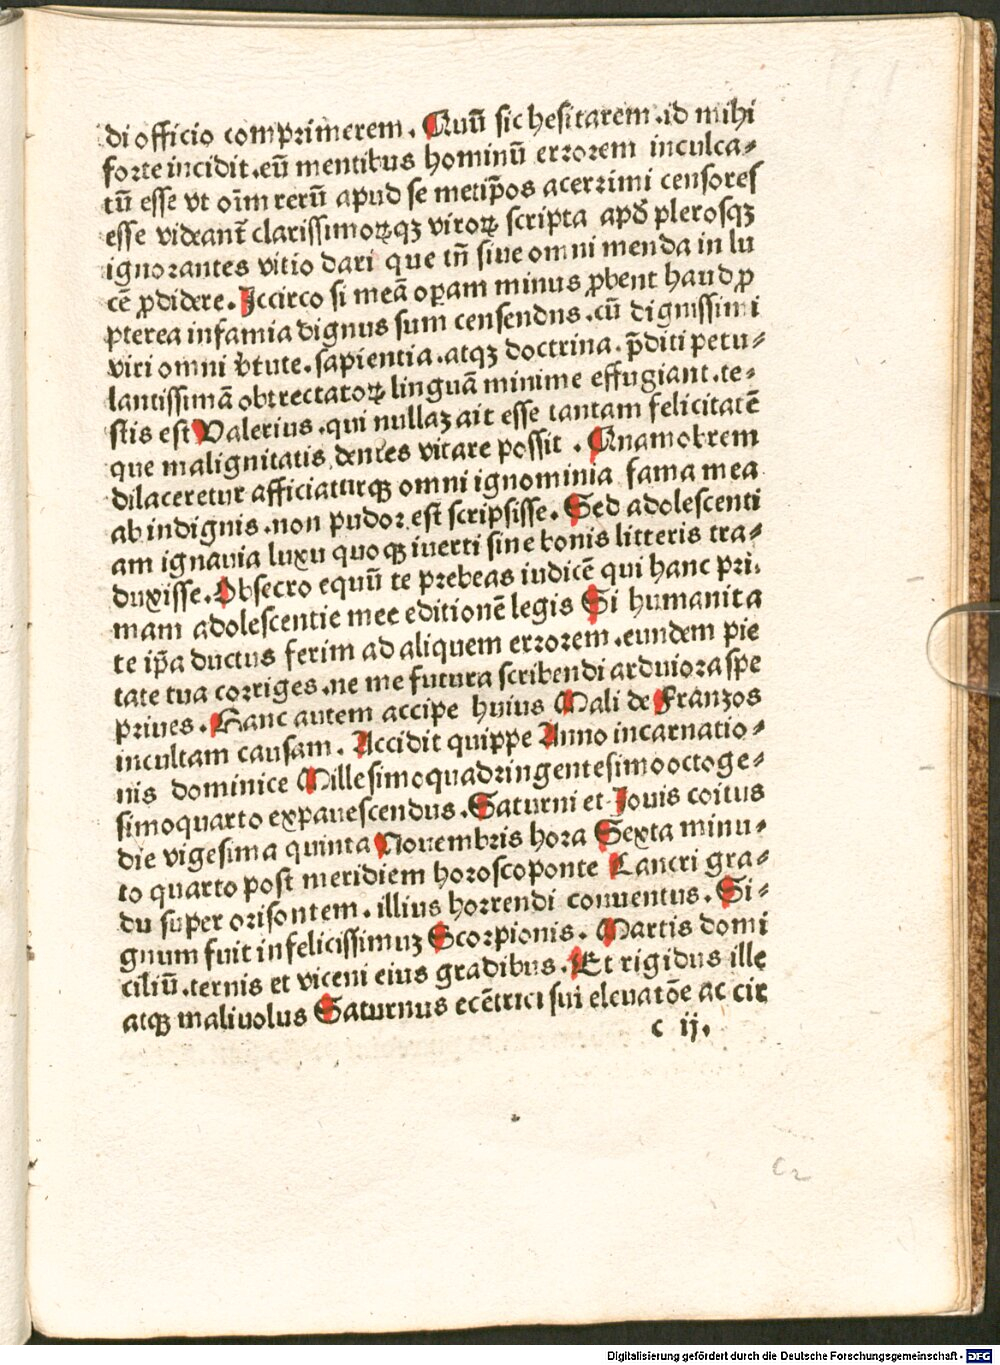 di officio comprimerem. Quū sic hesitarem.id mihi
forte incidit.eū mentibus hominū errorem inculca⸗
tū esse vt oīm rerū apud se metip̄os acerrimi censores
esse videant̄ clarissimoꝝqꝫ viroꝝ scripta apḋ plerosqꝫ
ignorantes vitio dari que tn̄ siue omni menda in lu
cē ꝓdidere. Iccirco si meā oꝑam minus ꝓbent haud ꝓ
pterea infamia dignus sum censendns.cū dignissimi
viri omni v̇tute.sapientia.atqꝫ doctrina.p̄diti petu⸗
lantissimā obtrectatoꝝ linguā minime effugiant.te⸗
stis est Valerius.qui nullaꝫ ait esse tantam felicitatē
que malignitatis dentes vitare possit. Qnamobrem
dilaceretur afficiaturqꝫ omni ignominia fama mea
ab indignis.non pudor est scripsisse. Sed adolescenti
am ignauia luxu quoqꝫ inerti sine bonis litteris tra⸗
duxisse. Obsecro equū te prebeas iudicē qui hanc pri⸗
mam adolescentie mee editionē legis Si humanita
te ip̄a ductus ferim ad aliquem errorem.eundem pie
tate tua corriges.ne me futura scribendi arduiora spe
priues. Hanc autem accipe huius Mali de Franzos
incultam causam. Accidit quippe Anno incarnatio⸗
nis dominice Millesimoquadringentesimooctoge⸗
simoquarto expauescendus. Saturni et Iouis coitus
die vigesima quinta Nouembris hora Sexta minu⸗
to quarto post meridiem horoscoponte Cancri gra⸗
du super orisontem.illius horrendi conuentus. Si⸗
gnum fuit infelicissimuꝫ Scorpionis. Martis domi
ciliū.ternis et viceni eius gradibus. Et rigidus ille
atqꝫ maliuolus Saturnus ecētrici sui eleuatōe ac cir
c ij.
c2
Digitalisierung gefördert durch die Deutsche Forschungsgemeinschaft - DFG